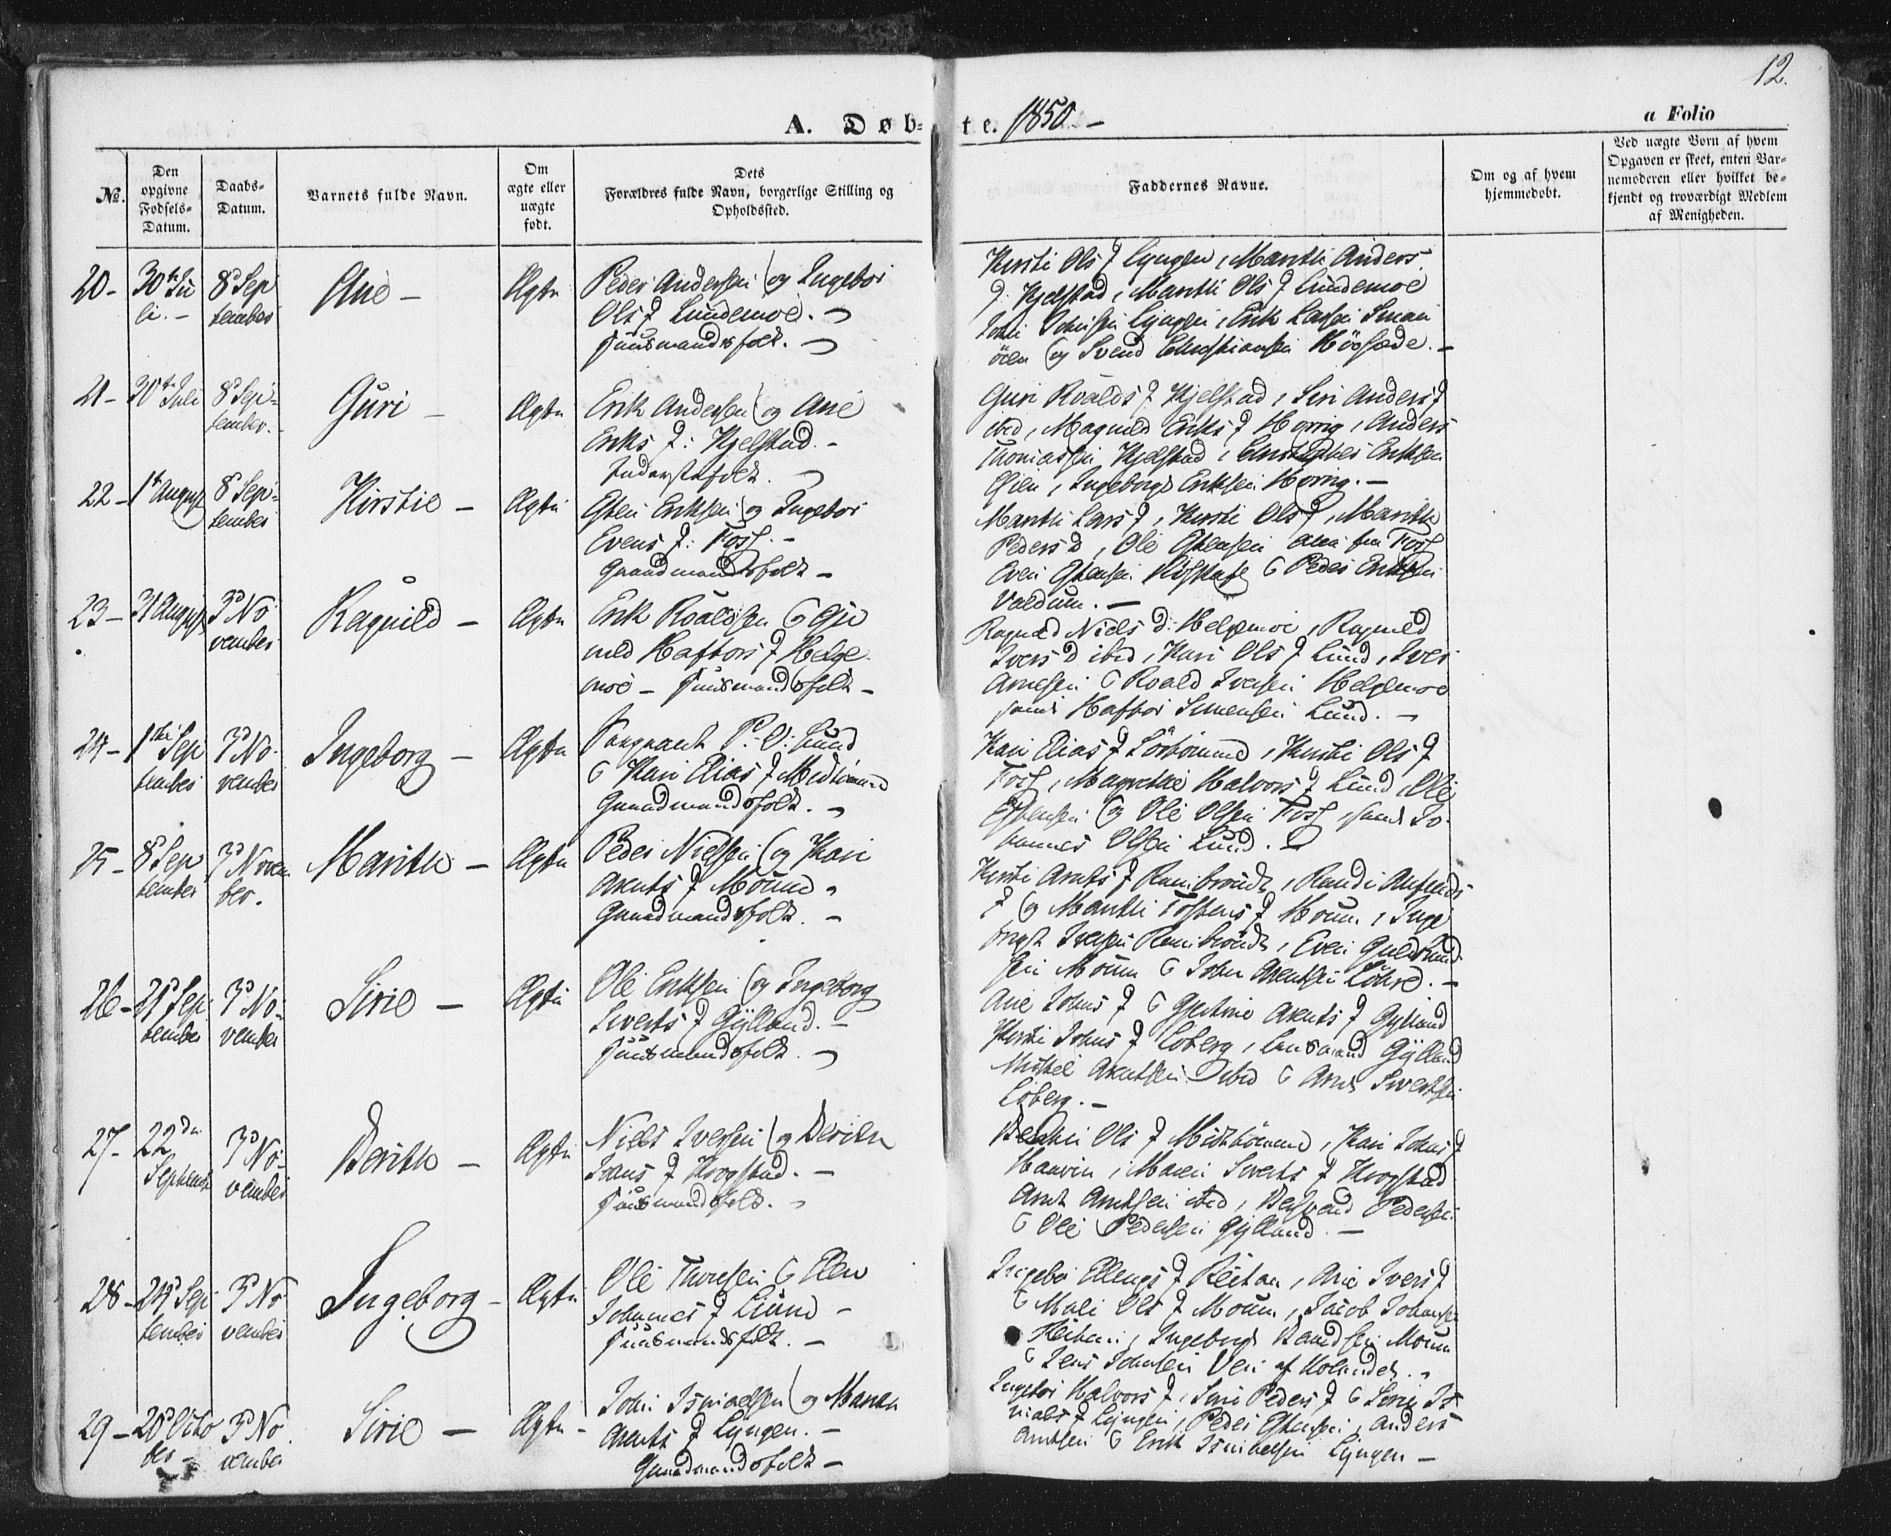 12.
A. Døb-te. 1850 -
a Folio
No.
Den opgivne Fødsels-Datum.
Daabs-Datum.
Barnets fulde Navn.
Om ægte eller uægte født.
Dets Forældres fulde Navn, borgerlige Stilling og Opholdssted.
Faddernes Navne.
Om og af hvem hjemmedøbt.
Ved uægte Børn af hvem Opgaven er skeet, enten Barnemoderen eller hvilket bekjendt og troværdigt Medlem af Menigheden.
20 - 30te Juli. - 8de September Ane - Ægte
Peder Andersen og Ingebor
Ols D Lundemoe. -
Huusmandsfolk. -
Kirsti Ols D Lyngen, Marithe Anders
D: Kjelstad, Marithe Ols D Lundemoe
John Johnsen Lyngen, Erik Larsen
og Svend Christiansen
21 - 30te Juli 8de September. Guri - Ægte
Erik Andersen og Ane
Eriks D: Kjelstad. -
Inderstefolk. -
Guri Roalds D Kjelstad, Siri Anders D
ibid, Magnild Eriks D Horrig, Anders
Thomassen Kjelstad, Eriksen
Ingebrigt Eriksen Horrig. -
22 - 1te August 8de September Kirstie - Ægte
Esten Eriksen og Ingebor
Evens D: Foss. -
Gaardmandsfolk -
Marithe Lars D, Kirsti Ols D, Marithe
Peders D, Ole Estensen alle fra Foss
Even Estensen & Peder Eriksen
Valdum. -
23 - 31 August 3de November Ragnild - Ægte
Erik Roaldsen &
Haftors D Helge
moe - Huusmandsfolk -
Ragnild Niels D: Helgemoe, Ragnild
Ivers D ibid, Kari Ols D Lund, Iver
Arnesen & Roald Iversen Helgemoe
samt Haftor Simensen Lund. -
24 - 1te September 3de November Ingeborg - Ægte
Sergeant P: O: Lund
& Kari Elias D
Gaardmandsfolk. -
Kari Elias D, Kirsti Ols D
Foss, Magrethe Halvors D Lund, Ole
Estensen og Ole Olsen Foss, samt Jo-
hannes Olsen Lund. -
25 - 8de September 3de November. Marithe - Ægte
Peder Nielsen og Kari
Arents D Moum -
Gaardmandsfolk. -
Kirsti Arnts D, Randi
D og Marithe Tostens D Moum, Inge
brigt Iversen, Even Guldbrand
sen Moum & John Arentsen. -
26 - September 3de November Sirie - Ægte
Ole Eriksen og Ingeborg
Siverts D Gylland. -
Huusmandsfolk. -
Ane Johns D & Gjertine Arents D Gylland
Kirsti Johns D Loberg, Gylland
Mikkel Arentsen ibid & Arnt Sivertsen
Loberg. -
27 - 22de September 3de November Berithe - Ægte
Niels Iversen og Berithe
D Krogstad. -
Huusmandsfolk. -
Ols D, Kari Johns D
Maren Siverts D Krogstad
Arnt Arntsen ibid, Pedersen
& Ole Pedersen Gylland. -
28 - September 3de November Ingeborg - Ægte
Ole Thoresen & Ellen
Johannes D Lund -
Huusmandsfolk. -
Ingebor Ellengs D Reitan, Ane Ivers D
& Mali Ols D Moum, Jacob Johansen
Reitan, Ingebrigt Moum
& Jens Johnsen
29 - 28de October - 3de November Sirie - Ægte -
John Ismaelsen og Maren
Arents D Lyngen. -
Gaardmandsfolk -
Ingebor Halvors D, Peders D & Is
maels D Lyngen, Peder Estensen, Anders
Arntsen & Erik Ismaelsen Lyngen -